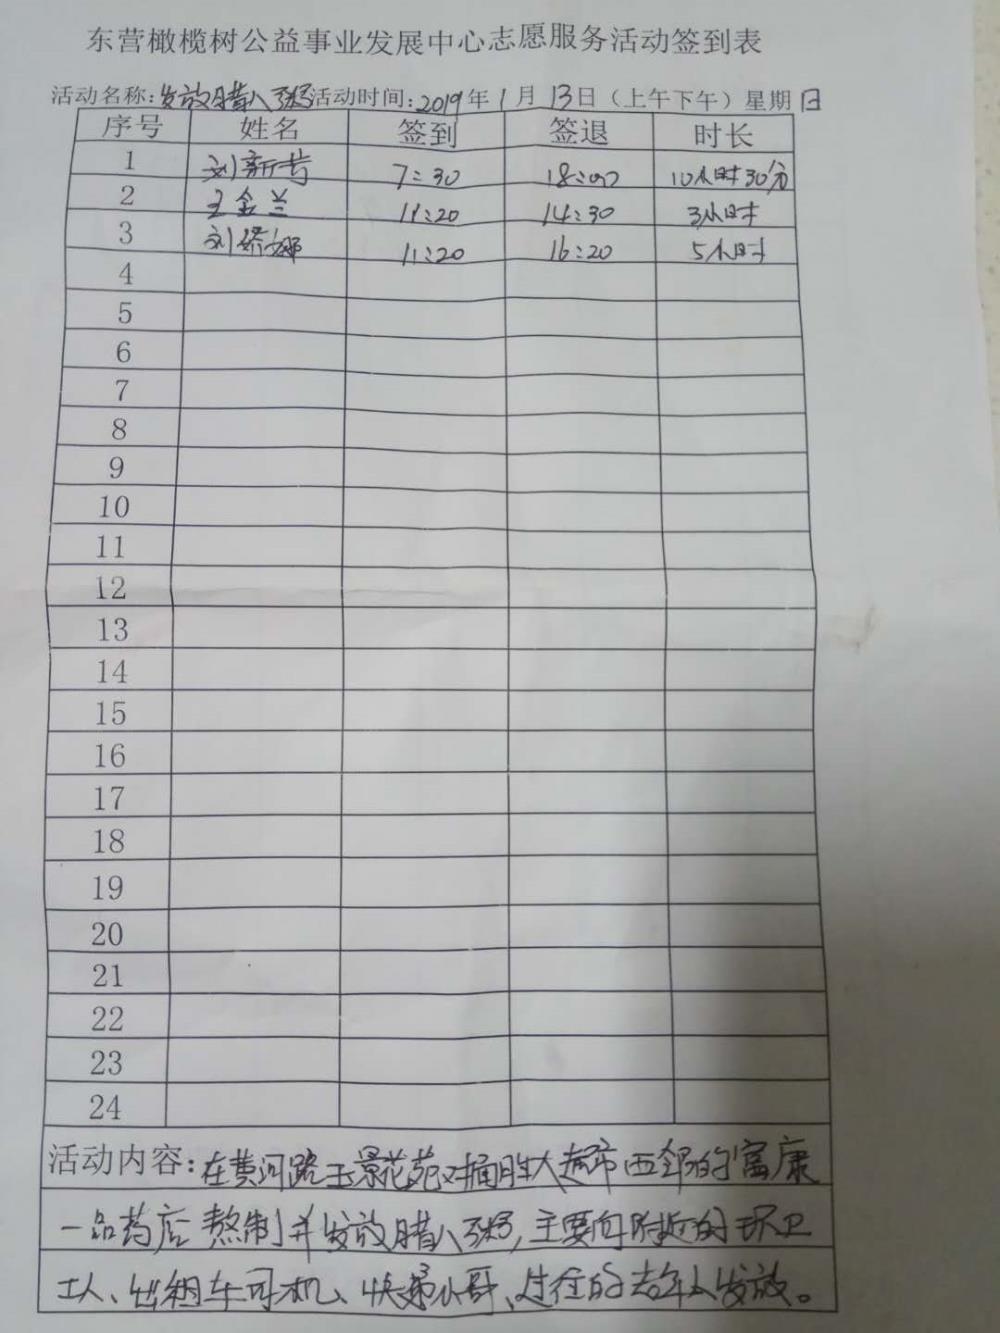 东营橄榄树公益事业发展中心志愿服务活动签到表
活动名称:发放腊八粥活动时间:2019年1月13日(上午下午)星期日
序号 姓名 签到 签退 时长
1 刘新 7:30 18:00 10小时30分
2 王金兰 11:20 14:30 3小时
3 刘娜 11:20 16:20 5小时
4
5
6
7
8
9
10
11
12
13
14
15
16
17
18
19
20
21
22
23
24
活动内容:在黄河路玉景花苑对面胜大超市西邻的富康
一品药店熬制并发放腊八粥,主要向附近的环卫
工人、出租车司机、快递小哥、过往的老年人发放。